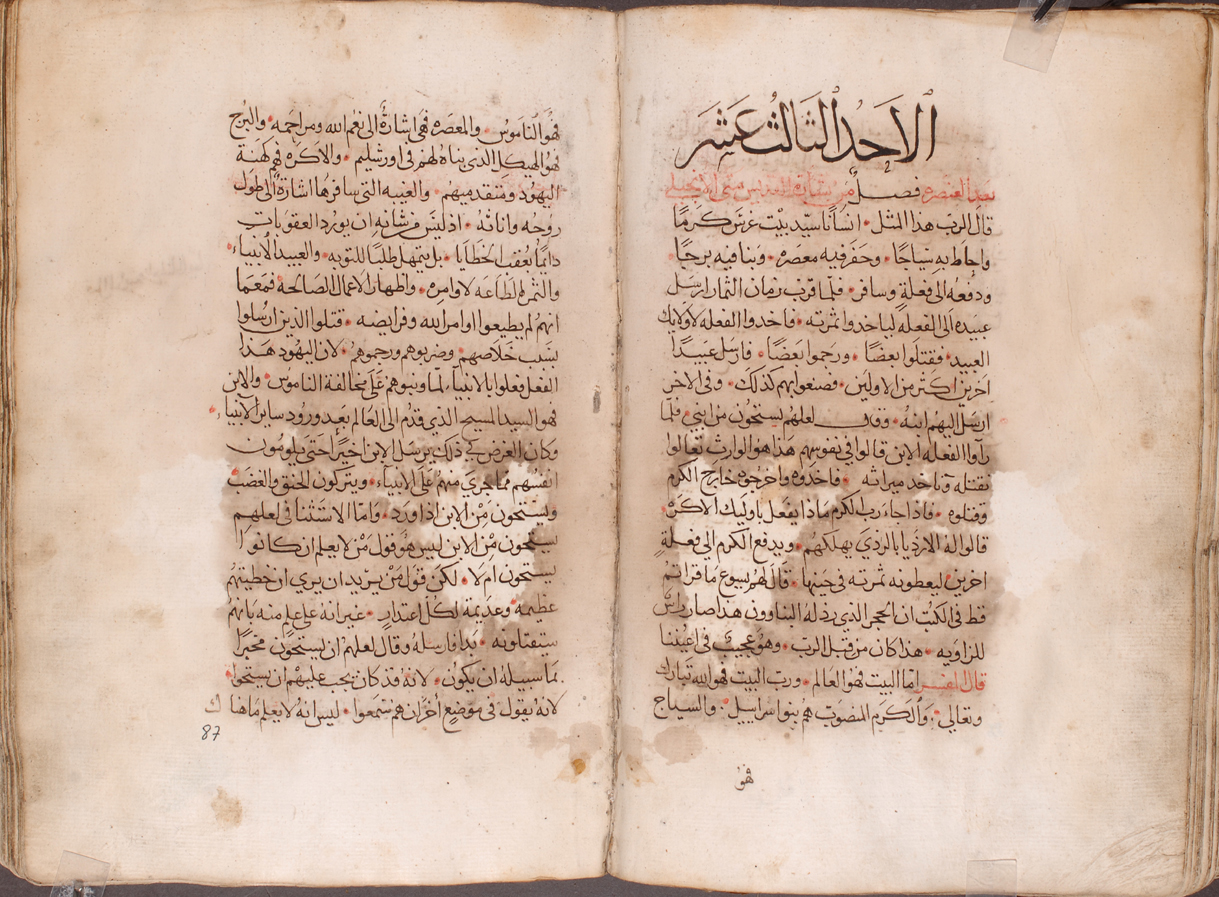 الاحد الثالث عشر
بعد العنصره فصل من بشارة القديس متى الانجيلي
قال الرب هذا المثل انسانا سيد بيت غرس كرما
واحاط به سياجا وحفر فيه معصره وبنا فيه برجا
ودفعه الى فعلة وسافر فلما قرب زمان الثمار ارسل
عبيده الى الفعله لياخدوا ثمرته فاخدوا الفعله لاولايك
العبيد فقتلوا بعضا ورجموا بعضا فارسل عبيدا
اخرين اكتر من الاولين فصنعوا بهم كذلك وفي الاخر
ارسل اليهم ابنه وقال لعلهم يستحون من ابني فلما
رآوا الفعله الابن قالوا في نفوسهم هذا هو الوارث تعالوا
نقتله وناخد ميراثه فاخدوه واخرجوه خارج الكرم
وقتلوه فاذا جاء رب الكرم ماذا يفعل باوليك الاكره
قالوا له الارديا بالردي يهلكهم ويدفع الكرم الى فعلة
اخرين ليعطونه ثمرته في حينها قال لهم يسوع ما قراتم
قط في الكتب ان الحجر الذي رذله البناوون هذا صار راس
للزاويه هذا كان من قبل الرب وهو عجيب في اعيننا
قال المفسر اما البيت فهو العالم ورب البيت فهو الله تبارك
وتعالى والكرم المنصوب هم بنوا سراييل والسياج
فهو
فهو الناموس والمعصره فهي اشارة الى نعم الله ومراحمه والبرج
فهو الهيكل الذي بناه لهم في اورشليم والاكره فهم كهنة
اليهود ومتقدميهم والغيبه التي سافرها اشارة الى طول
روحه واناته اذ ليس من شانه ان يورد العقوبات
دايما بعقب الخطايا بل يتمهل طلبا للتوبه والعبيد الانبياء
والثمرة الطاعه لاوامره واظهار الاعمال الصالحة فمع ما
انهم لم يطيعوا اوامر الله وفرايضه قتلوا الذين ارسلوا
بسبب خلاصهم وضربوهم ورجموهم لان اليهود هذا
الفعل فعلوا بالانبياء لما وبنوهم على مخالفة الناموس والابن
فهو السيد المسيح الذي قدم الى العالم بعد ورود ساير الانبياء
وكان الغرض في ذلك يرسل الابن اخيرا حتى يلومون
انفسهم مما جري منهم على الانبياء ويتركون الحنق والغضب
ويستحون من الابن اذا ورد واما الاستثنا في لعلهم
يستحون من الابن ليس هو قول من لا يعلم ان كانوا
يستحون ام لا لكن قول من يريد ان يري ان خطيتهم
عظيمة وعديمة لكل اعتدار غير انه على علم منه بانهم
سيقتلونه بدا فارسله وقال لعلهم ان يستحون مخبرا
بما سبيله ان يكون لانه قد كان يجب عليهم ان يستحوا
لانه يقول في موضع اخر ان هم سمعوا ليس انه لا يعلم ماهنا ك
87